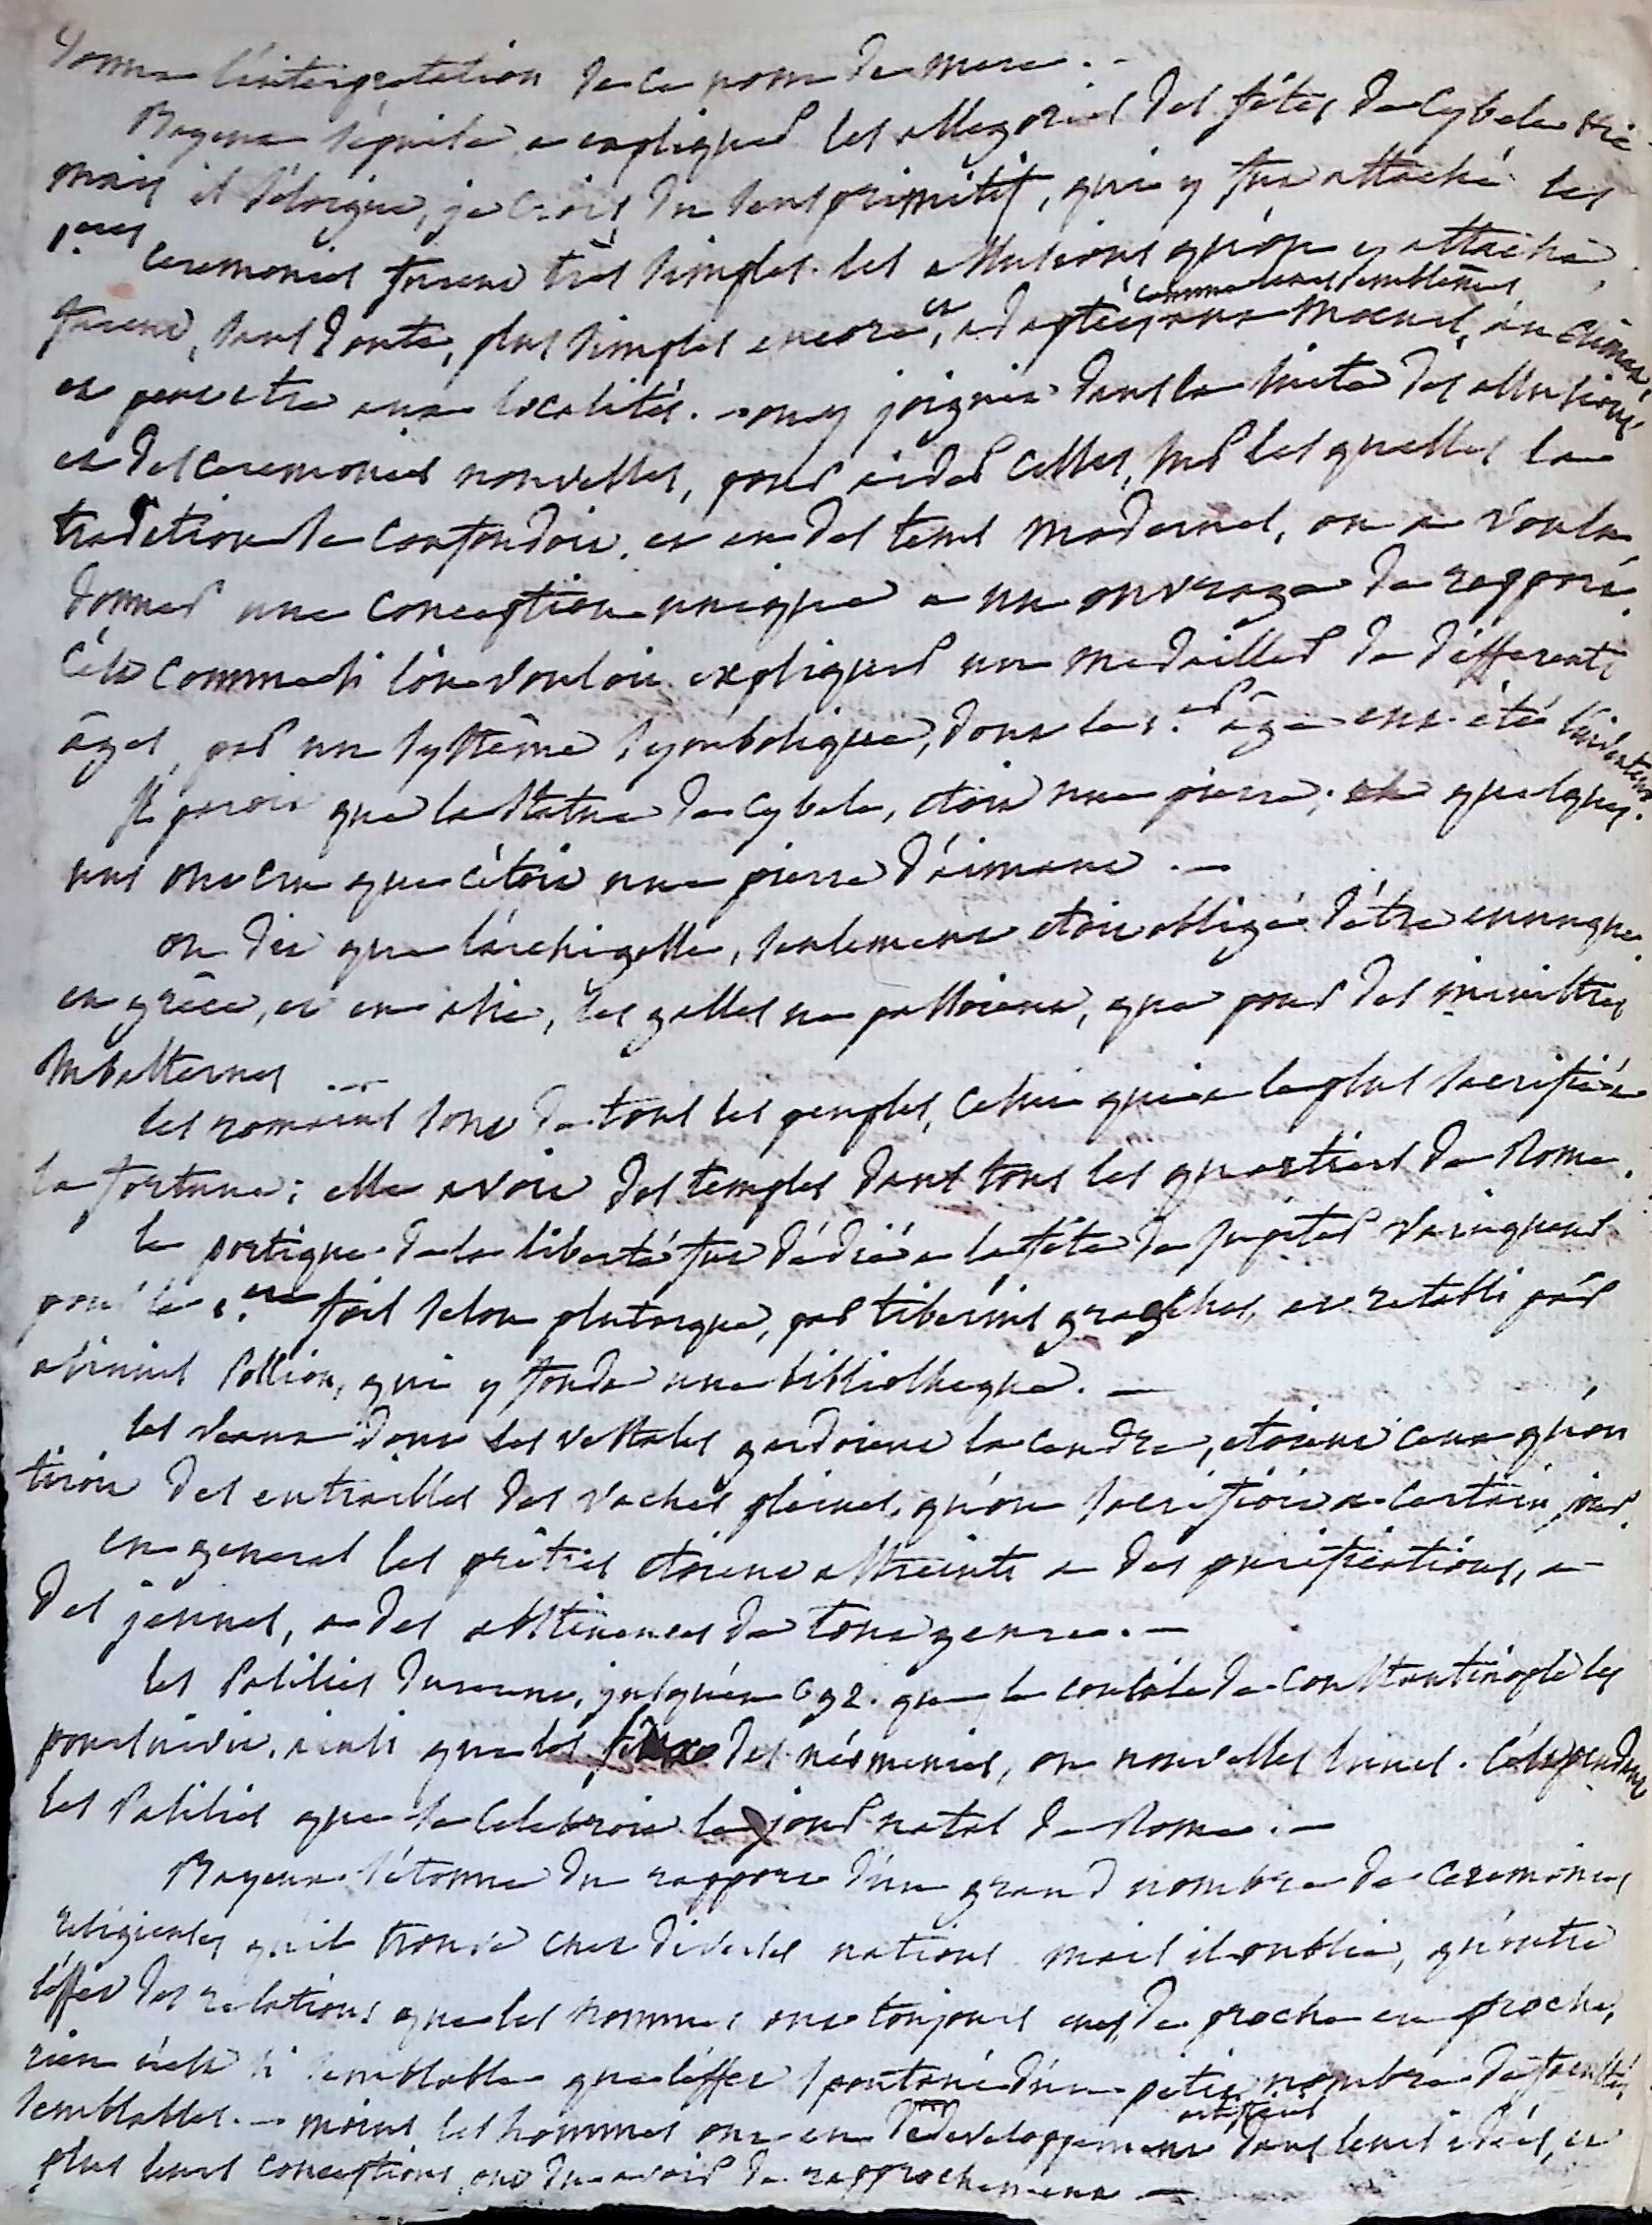 donne l'interpretation de ce nom de mere. -
Bayeux s'épuise a expliquer les allegories des fêtes de Cybele
mais il s'éloigne, je crois, du sens primitif, qui y fut attaché. les
1.eres ceremonies furent très simples. les allusions qu'on y attacha,
furent, sans doute, plus simples encore, et adaptées comme leurs emblêmes aux moeurs, au climat,
et peut etre aux localités. - on y joignit dans la suite des allusions
et des ceremonies nouvelles, pour aider celles, sur les quelles la
tradition se confondoit. et en des tems modernes, on a voulu
donner une conception unique a un ouvrage de rapport.
c'est comme si l'on vouloit expliquer un medailler de differents
âges, par un système symbolique, dont le 1.er âge eut été l'inventeur
Il paroit que la statue de Cybele, étoit une pierre; quelques
uns ont cru que c'étoit une pierre d'aimant. -
on dit que l'archigalle, seulement étoit obligé d'être eunuque.
en grèce, et en asie, les galles ne passoient, que pour des ministres
subalternes. -
les romains sont de tous les peuples, celui qui a le plus sacrifié a
la fortune; elle avoit des temples dans tous les quartiers de Rome.
le portique de la liberté fut dédié a la fête de Jupiter vainqueur
pour la 1.ere fois selon plutarque, par tiberius gracchus, et retabli par
asinius Pollion, qui y fonda une bibliotheque. -
les veaux dont les vestales gardoient la cendre, etoient ceux qu'on
tiroit des entrailles des vaches pleines, qu'on sacrifioit a certain jour.
en general les prêtres étoient astreints a des purifications, a
des jeunes, a des abstinences de tout genre. -
les Palilies durerent, jusqu'en 692. que le concile de Constantinople les
poursuivit. ainsi que les feux des néomenies, ou nouvelles lunes. c'est pendant
les Palilies que se celebroit le jour natal de Rome. -
Bayeux s'étonne du rapport d'un grand nombre de ceremonies
religieuses qu'il trouve chez diverses nations. mais il oublie, qu'outre
l'effet des relations que les hommes ont toujours eues, de proche en proche,
rien n'est si semblable que l'effet spontané d'un petit nombre de facultés
semblables. - moins les hommes ont eu de developpement artificiel dans leurs idées, et
plus leurs conceptions ont du avoir de rapprochement -